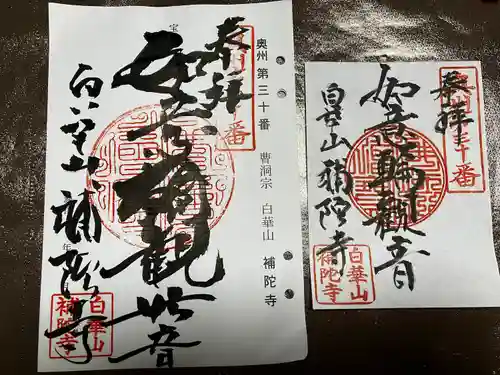 奉拝
奥州三十番
如意輪観音
白華山
補陀寺
白華山
補陀寺
宝
奥州 第三十番 曹洞宗 白華山 補陀寺
奉拝
如意輪観音
白華山 補陀寺
年
白華山
補陀寺